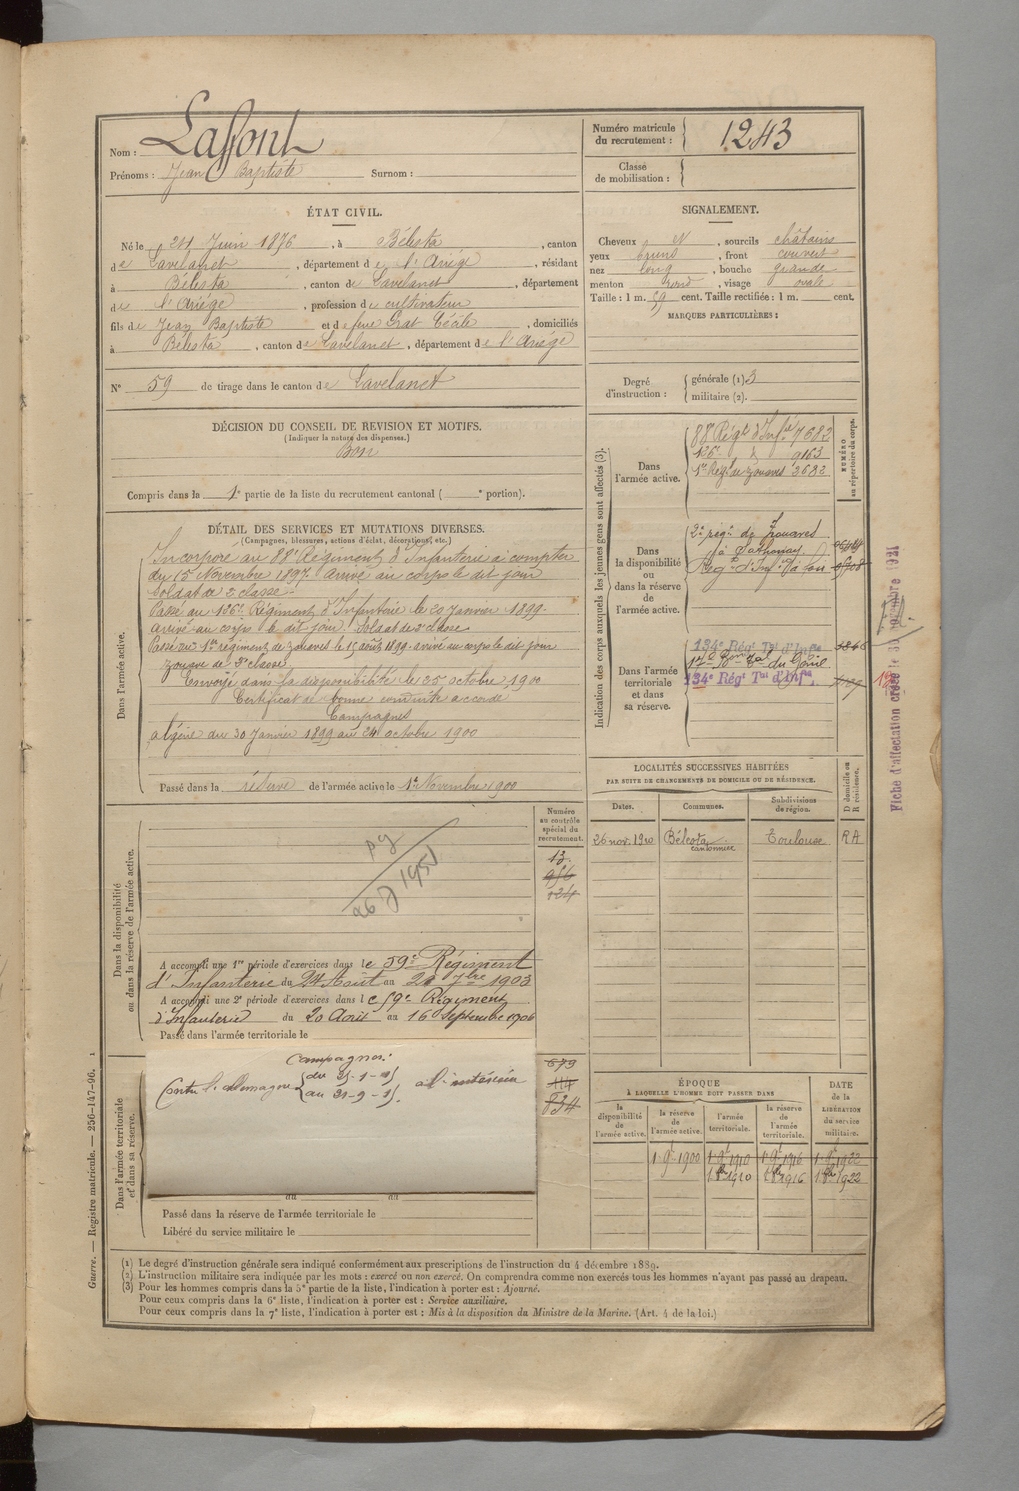 Nom : Lafont
Prénoms : Jean Baptiste Surnom :
Numéro matricule du recrutement : 1243
Classe de mobilisation :
ÉTAT CIVIL.
Né le 24 Juin 1876, à Bélesta, canton
de Lavelanet, département de l'Ariége, résidant
à Bélesta, canton de Lavelanet, département
de l'Ariége, profession de cultivateur
fils de Jean Baptiste et de feue Grat Cécile, domiciliés
à Bélesta, canton de Lavelanet, département de l'Ariége
N° 59 de tirage dans le canton de Lavelanet
SIGNALEMENT.
Cheveux N, sourcils châtains
yeux bruns, front couvert
nez long, bouche grande
menton rond, visage ovale
Taille : 1 m. 59 cent. Taille rectifiée : 1 m. cent.
MARQUES PARTICULIÈRES :
Degré d'instruction : générale (1) 3
militaire (2).
DÉCISION DU CONSEIL DE REVISION ET MOTIFS.
(Indiquer la nature des dispenses.)
Bon
Compris dans la 1e partie de la liste du recrutement cantonal ( e portion).
DÉTAIL DES SERVICES ET MUTATIONS DIVERSES.
(Campagnes, blessures, actions d'éclat, décorations, etc.)
Dans l'armée active.
Incorporé au 88e Régiment d'Infanterie à compter
du 15 Novembre 1897. Arrivé au corps le dit jour
Soldat de 2e classe.
Passé au 126e Régiment d'Infanterie le 20 Janvier 1899
arrivé au corps le dit jour. Soldat de 2e classe
Passé au 1er régiment de zouaves le 15 août 1899 arrivé au corps le dit jour
zouave de 2e classe.
Envoyé dans la disponibilité le 25 octobre 1900
Certificat de bonne conduite accordé
Campagnes
Algérie du 30 Janvier 1899 au 24 octobre 1900
Passé dans la réserve de l'armée active le 1er Novembre 1900
Indication des corps auxquels les jeunes gens sont affectés (3).
NUMÉRO au répertoire du corps.
Dans l'armée active.
88e Régt d'Infie 7682
126e d 9163
1er Régt de zouaves 3682
Dans la disponibilité ou dans la réserve de l'armée active.
2e régt de Zouaves
à Sathonay
Dans l'armée territoriale et dans sa réserve.
134e Régt Tal d'Infie
134e Régt Tal d'Infie
Fiche d'affectation créée le
LOCALITÉS SUCCESSIVES HABITÉES
PAR SUITE DE CHANGEMENTS DE DOMICILE OU DE RÉSIDENCE.
D domicile ou R résidence.
Dates. Communes. Subdivisions de région.
26 nov. 1910 Bélesta Toulouse RA
cantonnier
Dans la disponibilité ou dans la réserve de l'armée active.
Numéro au contrôle spécial du recrutement.
13
A accompli une 1re période d'exercices dans le 59e Régiment
d'Infanterie du 24 Août au 20 7bre 1903
A accompli une 2e période d'exercices dans le 59e Régiment
d'Infanterie du 20 Août au 16 Septembre 1906
Passé dans l'armée territoriale le
Dans l'armée territoriale et dans sa réserve.
Campagnes :
Contre l'allemagne du 25-1-15 à l'intérieur
au 21-9-15.
679
114
834
du au
Passé dans la réserve de l'armée territoriale le
Libéré du service militaire le
ÉPOQUE
À LAQUELLE L'HOMME DOIT PASSER DANS
la disponibilité de l'armée active. la réserve de l'armée active. l'armée territoriale. la réserve de l'armée territoriale.
DATE de la LIBÉRATION du service militaire.
1.9e 1900 1.9e 1910 1.9e 1916 1.9e 1922
1 8bre 1910 1 8bre 1916 1 8bre 1922
(1) Le degré d'instruction générale sera indiqué conformément aux prescriptions de l'instruction du 4 décembre 1889.
(2) L'instruction militaire sera indiquée par les mots : exercé ou non exercé. On comprendra comme non exercés tous les hommes n'ayant pas passé au drapeau.
(3) Pour les hommes compris dans la 5e partie de la liste, l'indication à porter est : Ajourné.
Pour ceux compris dans la 6e liste, l'indication à porter est : Service auxiliaire.
Pour ceux compris dans la 7e liste, l'indication à porter est : Mis à la disposition du Ministre de la Marine. (Art. 4 de la loi.)
Guerre. — Registre matricule. — 256-147-96.